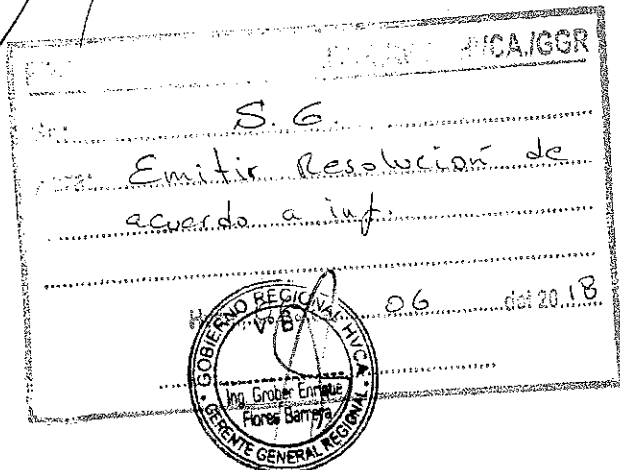 HVCA./GGR
S. G.
Emitir Resolución de
acuerdo a inf.
06 del 2018
GOBIERNO REGIONAL HVCA.
V° B°
Ing. Grober Enrique
Flores Barrera
GERENTE GENERAL REGIONAL